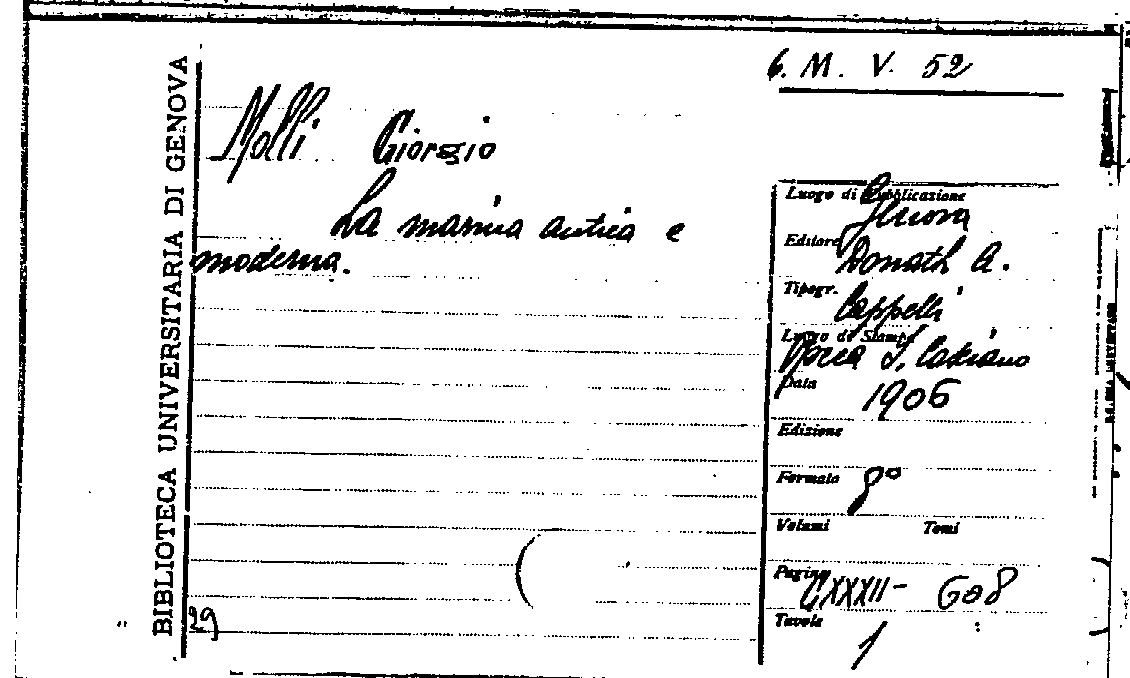 6. M. V. 52
BIBLIOTECA UNIVERSITARIA DI GENOVA
Molli Giorgio
La marina antica e
moderna.
Luogo di Pubblicazione Genova
Editore Donath A.
Tipogr. Cappelli
Luogo di Stampa Rocca S. Casciano
Data 1906
Edizione
Formato 8°
Volumi Tomi
Pagine CXXXII - 608
Tavole 1
29